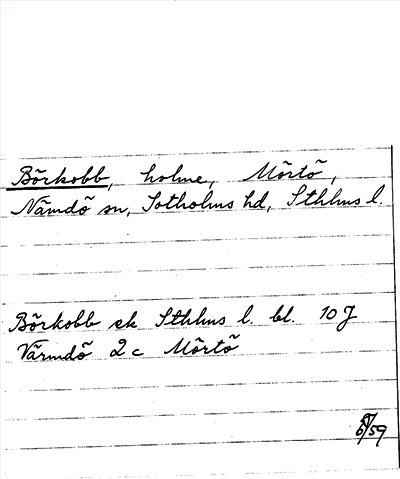 Börkobb, holme, Mörtö,
Nämdö sn, Sotholms hd, Sthlms l.
Börkobb ek Sthlms l. bl. 10 J
Värmdö 2 c Mörtö
/59